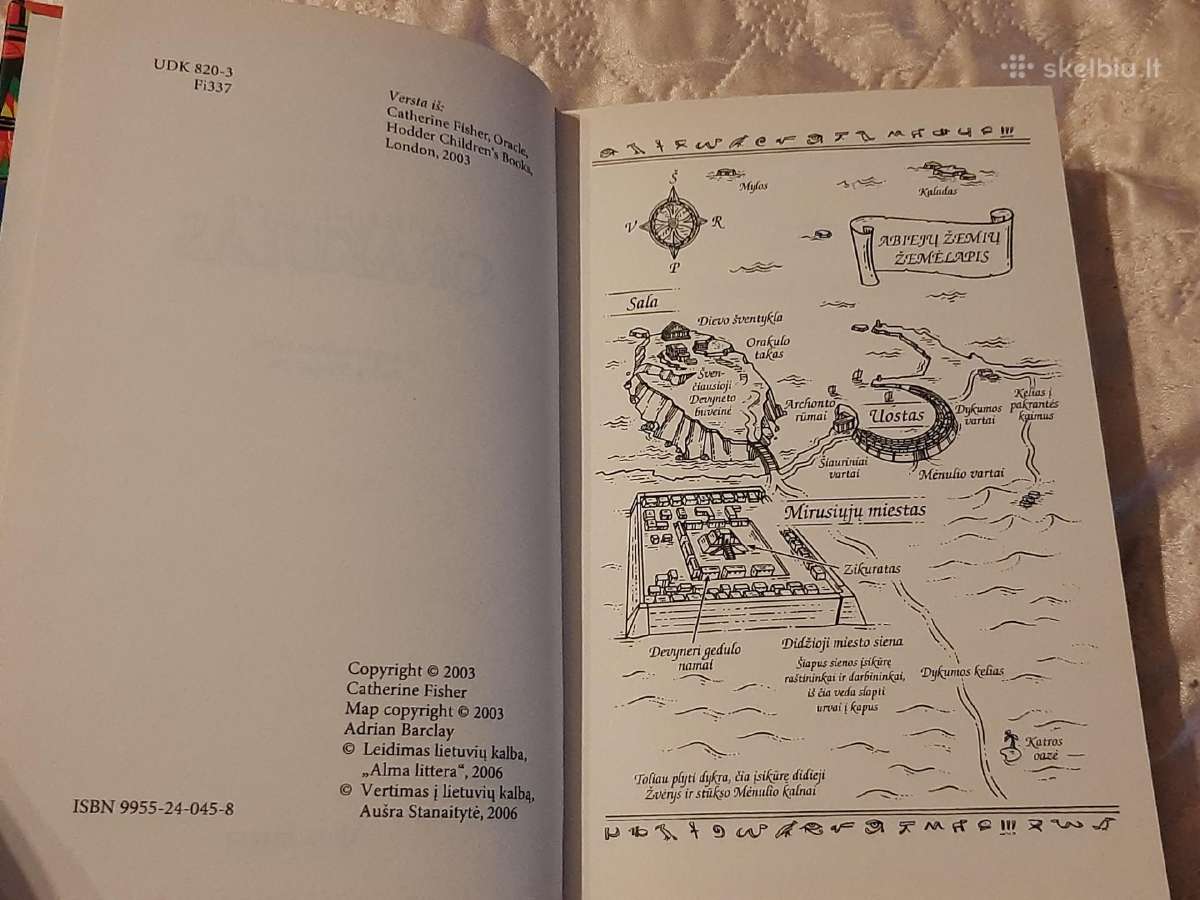 skelbiu.lt
UDK 820-3
Fi337
Versta iš:
Catherine Fisher, Oracle,
Hodder Children's Books,
London, 2003
Copyright © 2003
Catherine Fisher
Map copyright © 2003
Adrian Barclay
© Leidimas lietuvių kalba,
„Alma littera“, 2006
© Vertimas į lietuvių kalbą,
Aušra Stanaitytė, 2006
ISBN 9955-24-045-8
Š
V
R
P
Mylos
Kaladas
ABIEJŲ ŽEMIŲ
ŽEMĖLAPIS
Sala
Dievo šventykla
Orakulo
takas
Šven-
čiausioji
Devyneto
buveinė
Archonto
rūmai
Uostas
Dykumos
vartai
Kelias į
pakrantės
kaimus
Šiauriniai
vartai
Mėnulio vartai
Mirusiųjų miestas
Zikuratas
Devyneri gedulo
namai
Didžioji miesto siena
Šiapus sienos įsikūrę
raštininkai ir darbininkai,
iš čia veda slapti
urvai į kapus
Dykumos kelias
Katros
oazė
Toliau plyti dykra, čia įsikūrę didieji
Žvėrys ir stūkso Mėnulio kalnai